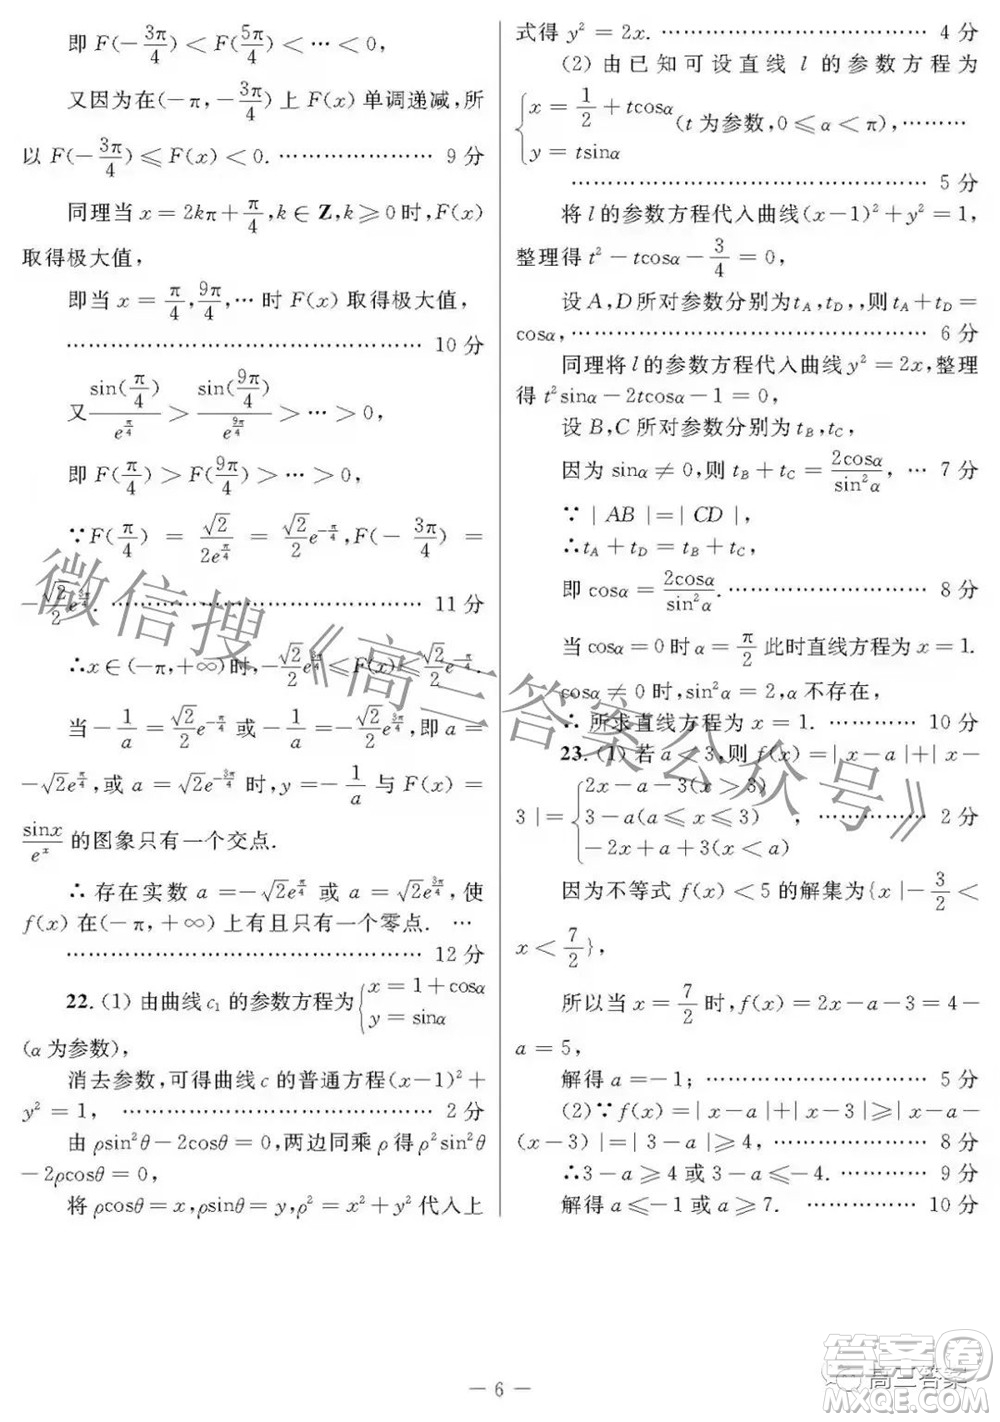 即 F(−3π/4) < F(5π/4) < ⋯ < 0,
又因为在(−π, −3π/4) 上 F(x) 单调递减,所
以 F(−3π/4) ⩽ F(x) < 0. ⋯⋯⋯⋯⋯⋯ 9 分
同理当 x = 2kπ + π/4, k ∈ Z, k ⩾ 0 时, F(x)
取得极大值,
即当 x = π/4, 9π/4, ⋯ 时 F(x) 取得极大值,
⋯⋯⋯⋯⋯⋯⋯⋯⋯⋯⋯⋯⋯⋯ 10 分
又 sin(π/4)/e^(π/4) > sin(9π/4)/e^(9π/4) > ⋯ > 0,
即 F(π/4) > F(9π/4) > ⋯ > 0,
∵F(π/4) = √2/(2e^(π/4)) = (√2/2)e^(−π/4), F(−3π/4) =
−(√2/2)e^(3π/4). ⋯⋯⋯⋯⋯⋯⋯⋯⋯⋯⋯⋯ 11 分
∴x ∈ (−π, +∞)时, −(√2/2)e^(3π/4) ⩽ F(x) ⩽ (√2/2)e^(−π/4).
当 −1/a = (√2/2)e^(−π/4) 或 −1/a = −(√2/2)e^(3π/4), 即 a =
−√2e^(π/4), 或 a = √2e^(−3π/4) 时, y = −1/a 与 F(x) =
sinx/e^x 的图象只有一个交点.
∴ 存在实数 a = −√2e^(π/4) 或 a = √2e^(3π/4), 使
f(x) 在(−π, +∞) 上有且只有一个零点. ⋯
⋯⋯⋯⋯⋯⋯⋯⋯⋯⋯⋯⋯⋯⋯ 12 分
22. (1) 由曲线 c₁ 的参数方程为 {x = 1 + cosα
y = sinα
(α 为参数),
消去参数,可得曲线 c 的普通方程(x − 1)² +
y² = 1, ⋯⋯⋯⋯⋯⋯⋯⋯⋯⋯⋯⋯ 2 分
由 ρsin²θ − 2cosθ = 0, 两边同乘 ρ 得 ρ²sin²θ
− 2ρcosθ = 0,
将 ρcosθ = x, ρsinθ = y, ρ² = x² + y² 代入上
式得 y² = 2x. ⋯⋯⋯⋯⋯⋯⋯⋯⋯⋯ 4 分
(2) 由已知可设直线 l 的参数方程为
{x = 1/2 + tcosα
y = tsinα (t 为参数, 0 ⩽ α < π), ⋯⋯⋯
⋯⋯⋯⋯⋯⋯⋯⋯⋯⋯⋯⋯⋯⋯ 5 分
将 l 的参数方程代入曲线(x − 1)² + y² = 1,
整理得 t² − tcosα − 3/4 = 0,
设 A, D 所对参数分别为 t_A, t_D, ,则 t_A + t_D =
cosα, ⋯⋯⋯⋯⋯⋯⋯⋯⋯⋯⋯⋯⋯⋯ 6 分
同理将 l 的参数方程代入曲线 y² = 2x, 整理
得 t²sinα − 2tcosα − 1 = 0,
设 B, C 所对参数分别为 t_B, t_C,
因为 sinα ≠ 0, 则 t_B + t_C = 2cosα/sin²α, ⋯ 7 分
∵ | AB | = | CD |,
∴t_A + t_D = t_B + t_C,
即 cosα = 2cosα/sin²α. ⋯⋯⋯⋯⋯⋯⋯⋯ 8 分
当 cosα = 0 时 α = π/2 此时直线方程为 x = 1.
cosα ≠ 0 时, sin²α = 2, α 不存在,
∴ 所求直线方程为 x = 1. ⋯⋯⋯⋯ 10 分
23. (1) 若 a < 3, 则 f(x) = | x − a | + | x −
3 | = {2x − a − 3(x > 3)
3 − a(a ⩽ x ⩽ 3) , ⋯⋯⋯⋯⋯ 2 分
−2x + a + 3(x < a)
因为不等式 f(x) < 5 的解集为{x | −3/2 <
x < 7/2},
所以当 x = 7/2 时, f(x) = 2x − a − 3 = 4 −
a = 5,
解得 a = −1; ⋯⋯⋯⋯⋯⋯⋯⋯⋯ 5 分
(2)∵f(x) = | x − a | + | x − 3 | ⩾ | x − a −
(x − 3) | = | 3 − a | ⩾ 4, ⋯⋯⋯⋯⋯⋯ 8 分
∴3 − a ⩾ 4 或 3 − a ⩽ −4. ⋯⋯⋯⋯ 9 分
解得 a ⩽ −1 或 a ⩾ 7. ⋯⋯⋯⋯⋯ 10 分
微信搜《高三答案公众号》
答案卷
高三答案
— 6 —